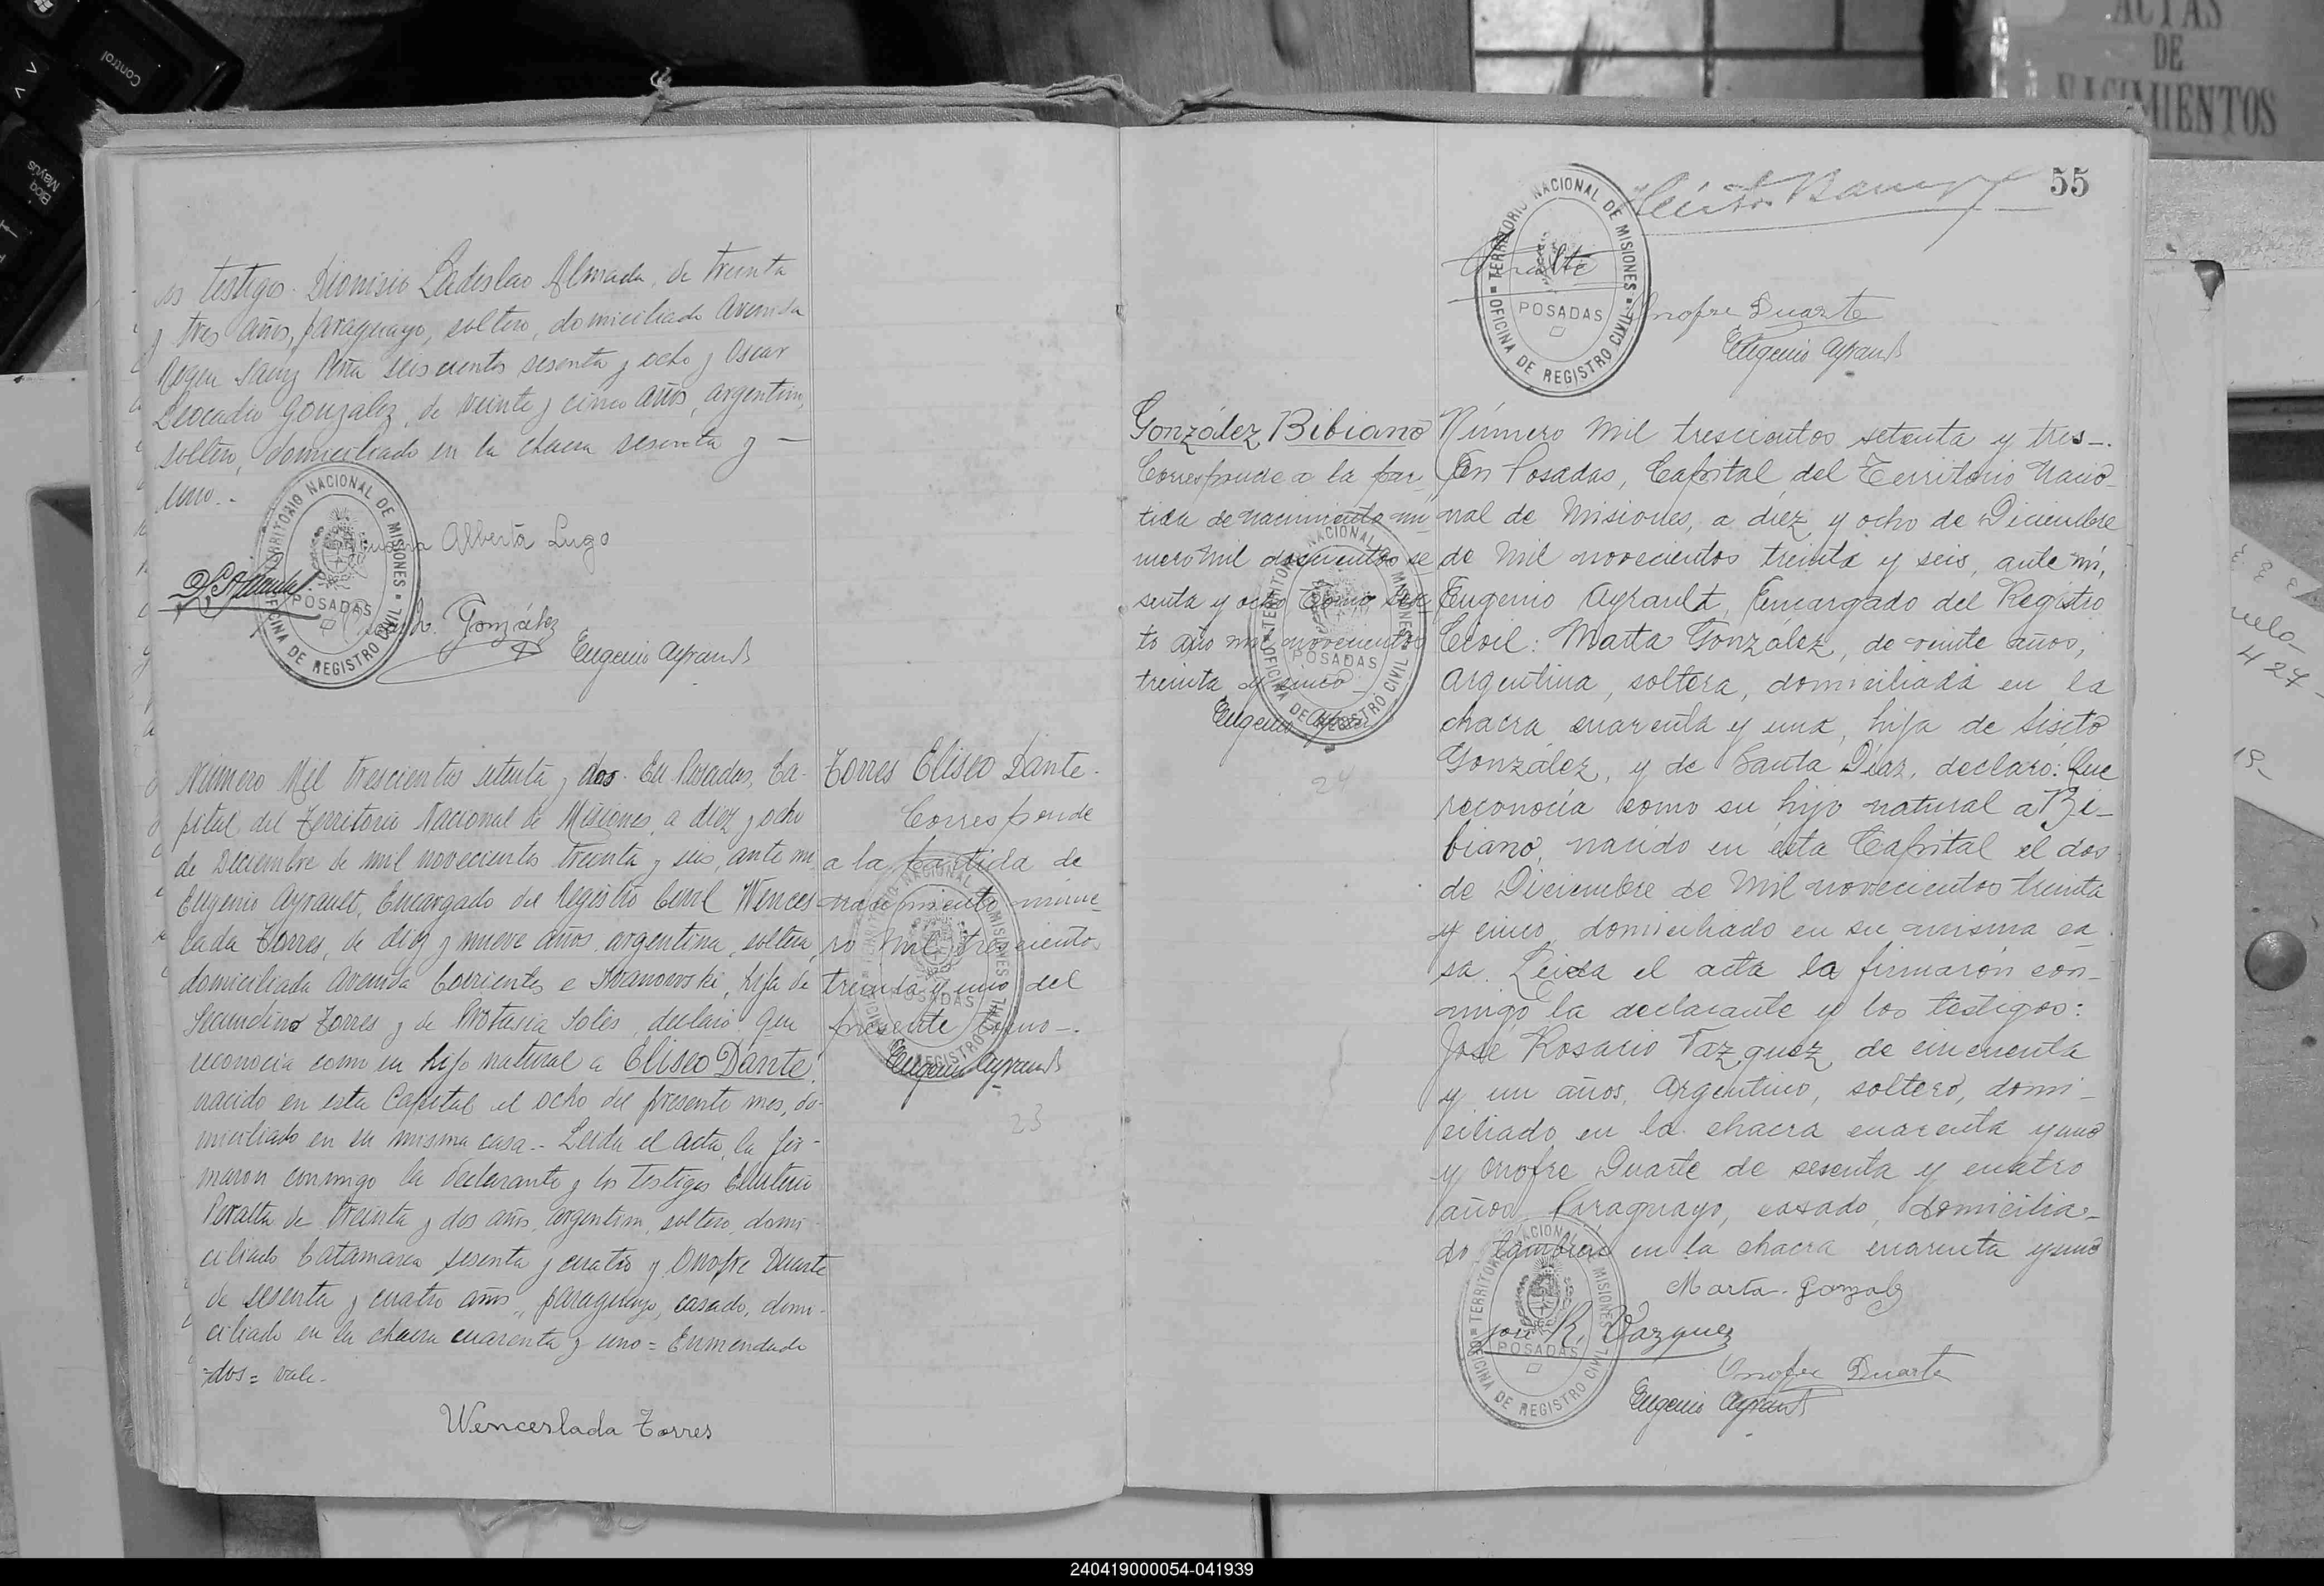 Control
Bloq
Mayús
ACTAS
DE
NACIMIENTOS
55
los testigos Dionisio Ladislao Almada, de treinta
y tres años, paraguayo, soltero, domiciliado Avenida
Roque Saenz Peña seiscientos sesenta y ocho y Oscar
Leocadio Gonzalez, de veinte y cinco años, argentino,
soltero, domiciliado en la chacra sesenta y —
uno.-
Alberta Lugo
TERRITORIO NACIONAL DE MISIONES
POSADAS
OFICINA DE REGISTRO CIVIL
González
Eugenio Ayrault
Número Mil trescientos setenta y dos. En Posadas, Ca-
pital del Territorio Nacional de Misiones, a diez y ocho
de Diciembre de mil novecientos treinta y seis, ante mi
Eugenio Ayrault, Encargado del Registro Civil Wences-
lada Torres, de diez y nueve años, argentina, soltera,
domiciliada Avenida Corrientes e Ivanowski, hija de
Secundino Torres y de Protasia Solis, declaró: Que
reconocia como su hijo natural a Eliseo Dante,
nacido en esta Capital el ocho del presente mes, do-
miciliado en su misma casa.- Leida el acta, la fir-
maron conmigo la declarante y los testigos Eleuterio
Peralta de treinta y dos años, argentino, soltero, domi-
ciliado Catamarca sesenta y cuatro y Onofre Duarte
de sesenta y cuatro años, paraguayo, casado, domi-
ciliado en la chacra cuarenta y uno = Enmendado
=dos= vale.-
Wenceslada Torres
Torres Eliseo Dante.
Corresponde
a la partida de
nacimiento núme-
ro mil trescientos
treinta y uno del
presente tomo-.
Eugenio Ayrault
TERRITORIO NACIONAL DE MISIONES
POSADAS
OFICINA DE REGISTRO CIVIL
23
TERRITORIO NACIONAL DE MISIONES
POSADAS
OFICINA DE REGISTRO CIVIL
Onofre Duarte
Eugenio Ayrault
González Bibiano
Corresponde a la par-
tida de nacimiento nú
mero mil doscientos se
senta y ocho Tomo sex
to año mil novecientos
treinta y cinco
Eugenio Ayrault
TERRITORIO NACIONAL DE MISIONES
POSADAS
OFICINA DE REGISTRO CIVIL
24
Número Mil trescientos setenta y tres-.
En Posadas, Capital del Territorio Nacio-
nal de Misiones, a diez y ocho de Diciembre
de Mil novecientos treinta y seis, ante mi,
Eugenio Ayrault, Encargado del Registro
Civil: Marta González, de veinte años,
Argentina, soltera, domiciliada en la
chacra cuarenta y una, hija de Sixto
González, y de Santa Díaz, declaró: Que
reconocía como su hijo natural a Bi-
biano, nacido en esta Capital el dos
de Diciembre de Mil novecientos treinta
y cinco, domiciliado en su misma ca-
sa. Leida el acta la firmarón con-
migo la declarante y los testigos:
José Rosario Vazquez, de cincuenta
y un años, Argentino, soltero, domi-
ciliado en la chacra cuarenta y uno
y Onofre Duarte de sesenta y cuatro
años Paraguayo, casado, domicilia-
do tambien en la chacra cuarenta y uno
Marta Gonzalez
José R. Vazquez
Onofre Duarte
Eugenio Ayrault
TERRITORIO NACIONAL DE MISIONES
POSADAS
OFICINA DE REGISTRO CIVIL
424
19-
240419000054-041939